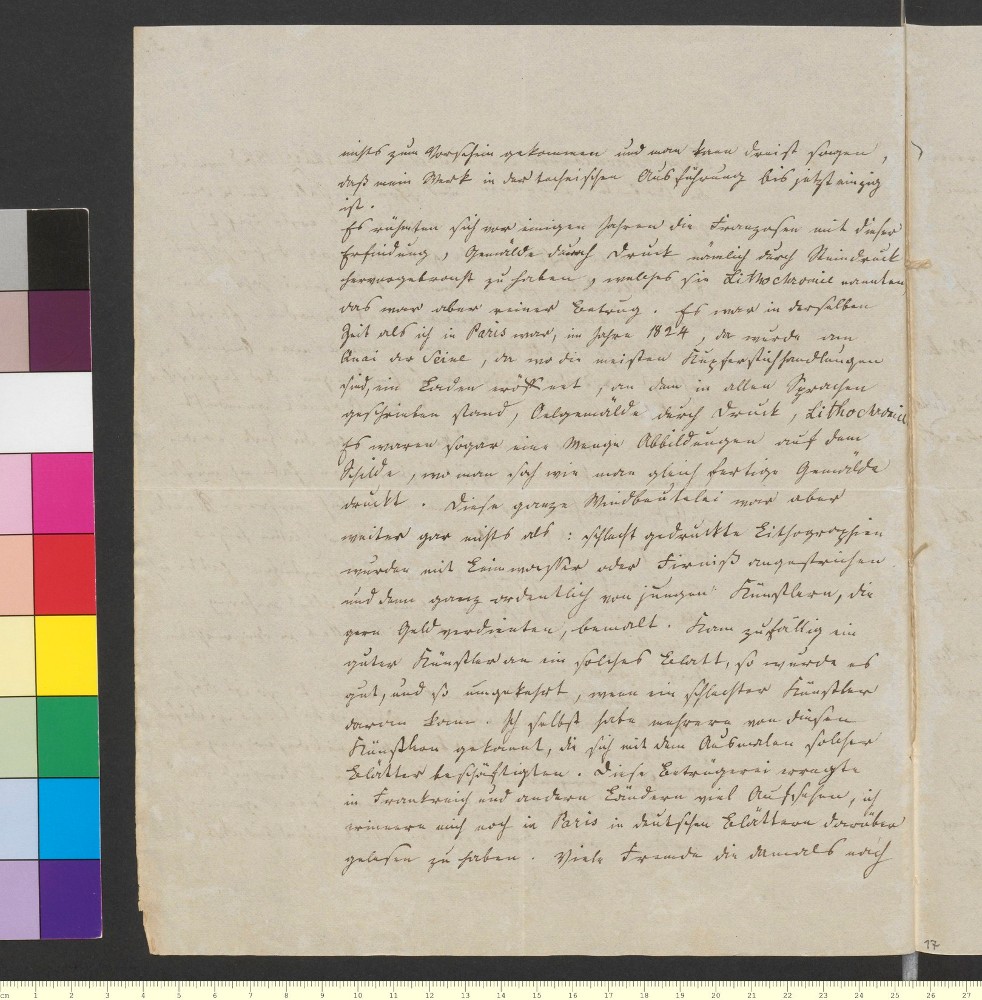 nichts zum Vorschein gekommen und man kann dreist sagen,
daß mein Werk in der technischen Ausführung bis jetzt einzig
ist.
Es rühmten sich vor einigen Jahren die Franzosen mit dieser
Erfindung, Gemälde durch Druck nämlich durch Steindruck
hervorgebracht zu haben, welches sie Lithochromie nannten
das war aber reiner Betrug. Es war in derselben
Zeit als ich in Paris war, im Jahre 1824, da wurde am
Quai der Seine, da wo die meisten Kupferstichhandlungen
sind, ein Laden eröffnet, an dem in allen Sprachen
geschrieben stand, Oelgemälde durch Druck, Lithochromie
Es waren sogar eine Menge Abbildungen auf dem
Schilde, wo man sah wie man gleich fertige Gemälde
druckt. Diese ganze Windbeutelei war aber
weiter gar nichts als: schlecht gedruckte Lithographien
wurden mit Leimwasser oder Firniß angestrichen
und dann ganz ordentlich von jungen Künstlern, die
gern Geld verdienten, bemalt. Kam zufällig ein
guter Künstler an ein solches Blatt, so wurde es
gut, und so umgekehrt, wenn ein schlechter Künstler
daran kam. Ich selbst habe mehrere von diesen
Künstlern gekannt, die sich mit dem Ausmalen solcher
Blätter beschäftigten. Diese Betrügerei erregte
in Frankreich und andern Ländern viel Aufsehen, ich
erinnere mich noch in Paris in deutschen Blättern darüber
gelesen zu haben. Viele Fremde die damals nach
17